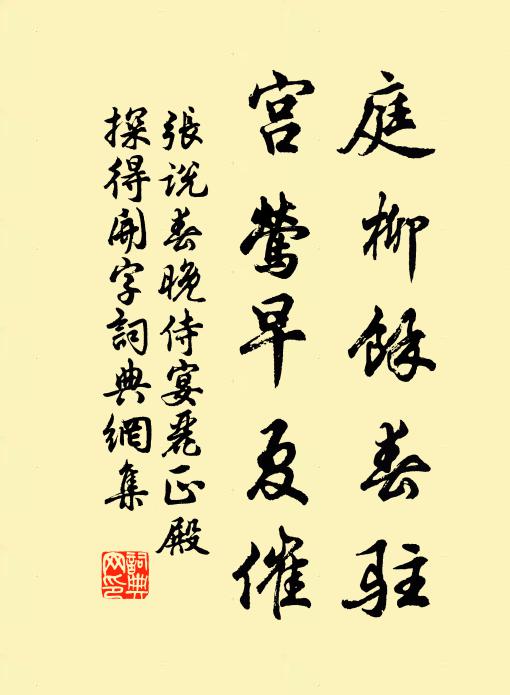 庭柳餘春駐
宮鶯早夏催
張說春晚侍宴麗正殿
探得開字詞典網集
詞典網印